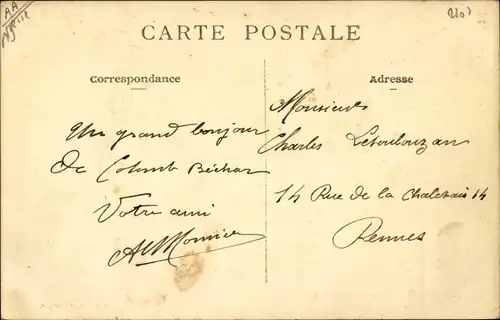 CARTE POSTALE
Correspondance
Un grand bonjour
de Colomb Béchar
Votre ami
Adresse
Monsieur
Charles
14 Rue de la Chaletais 14
Rennes